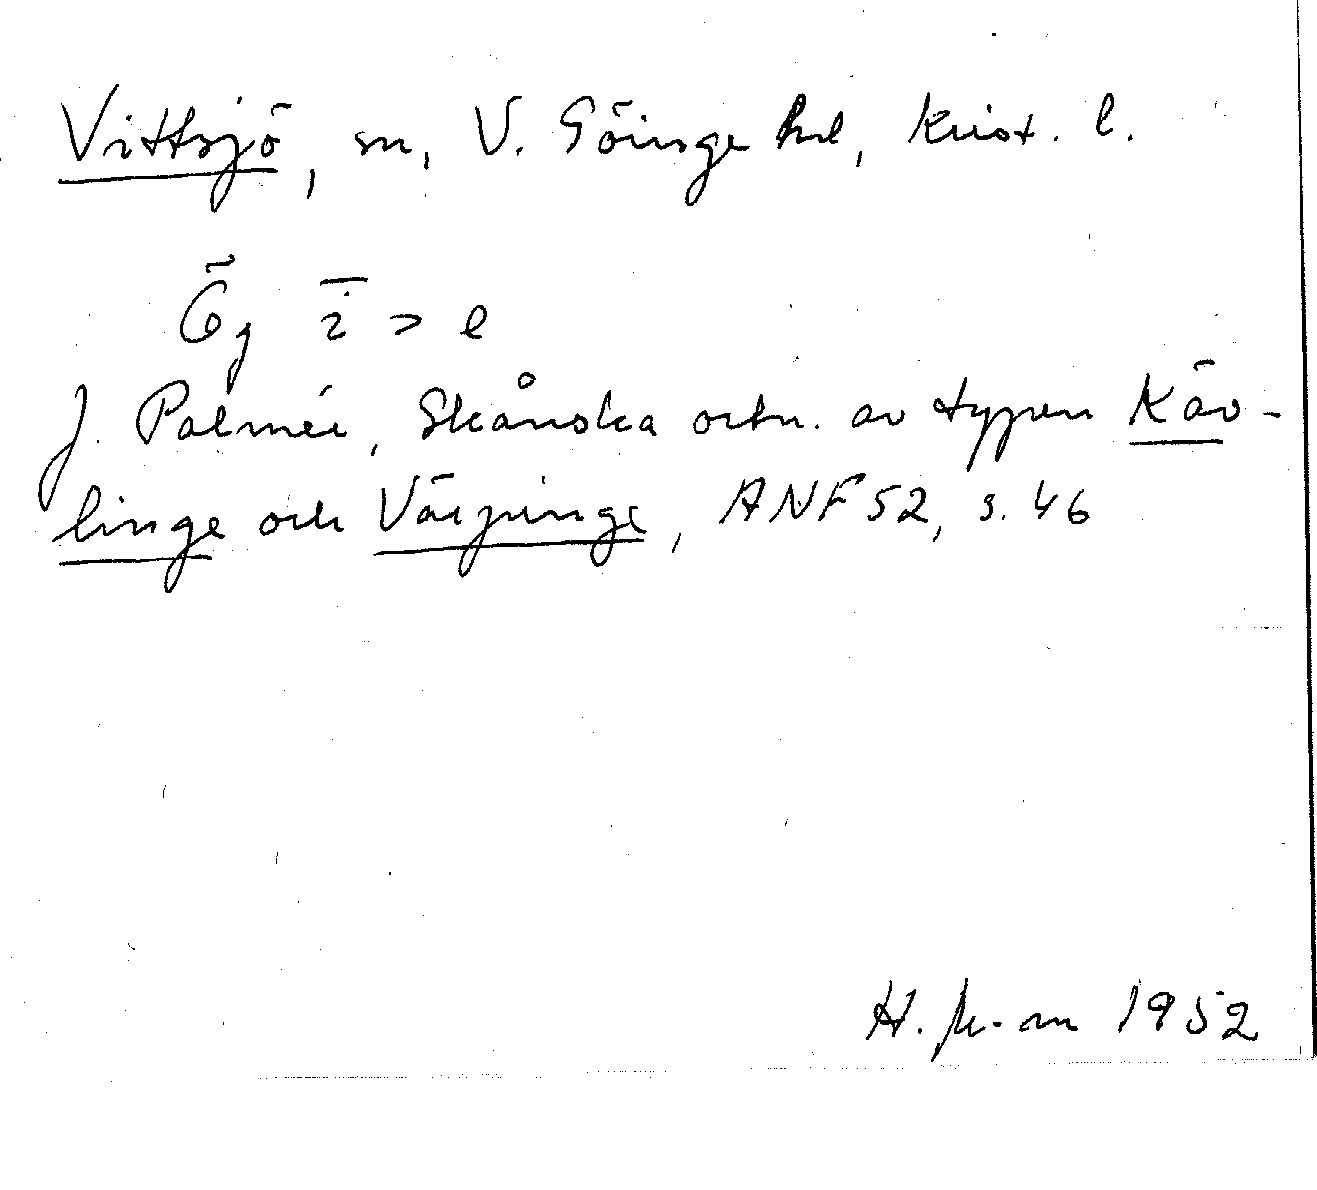 Vittsjö, sn, V. Göinge hd, Krist. l.
Ög ī > e
J. Palmér, Skånska ortn. av typen Käv-
linge och Värpinge, ANF 52, s. 46
1952